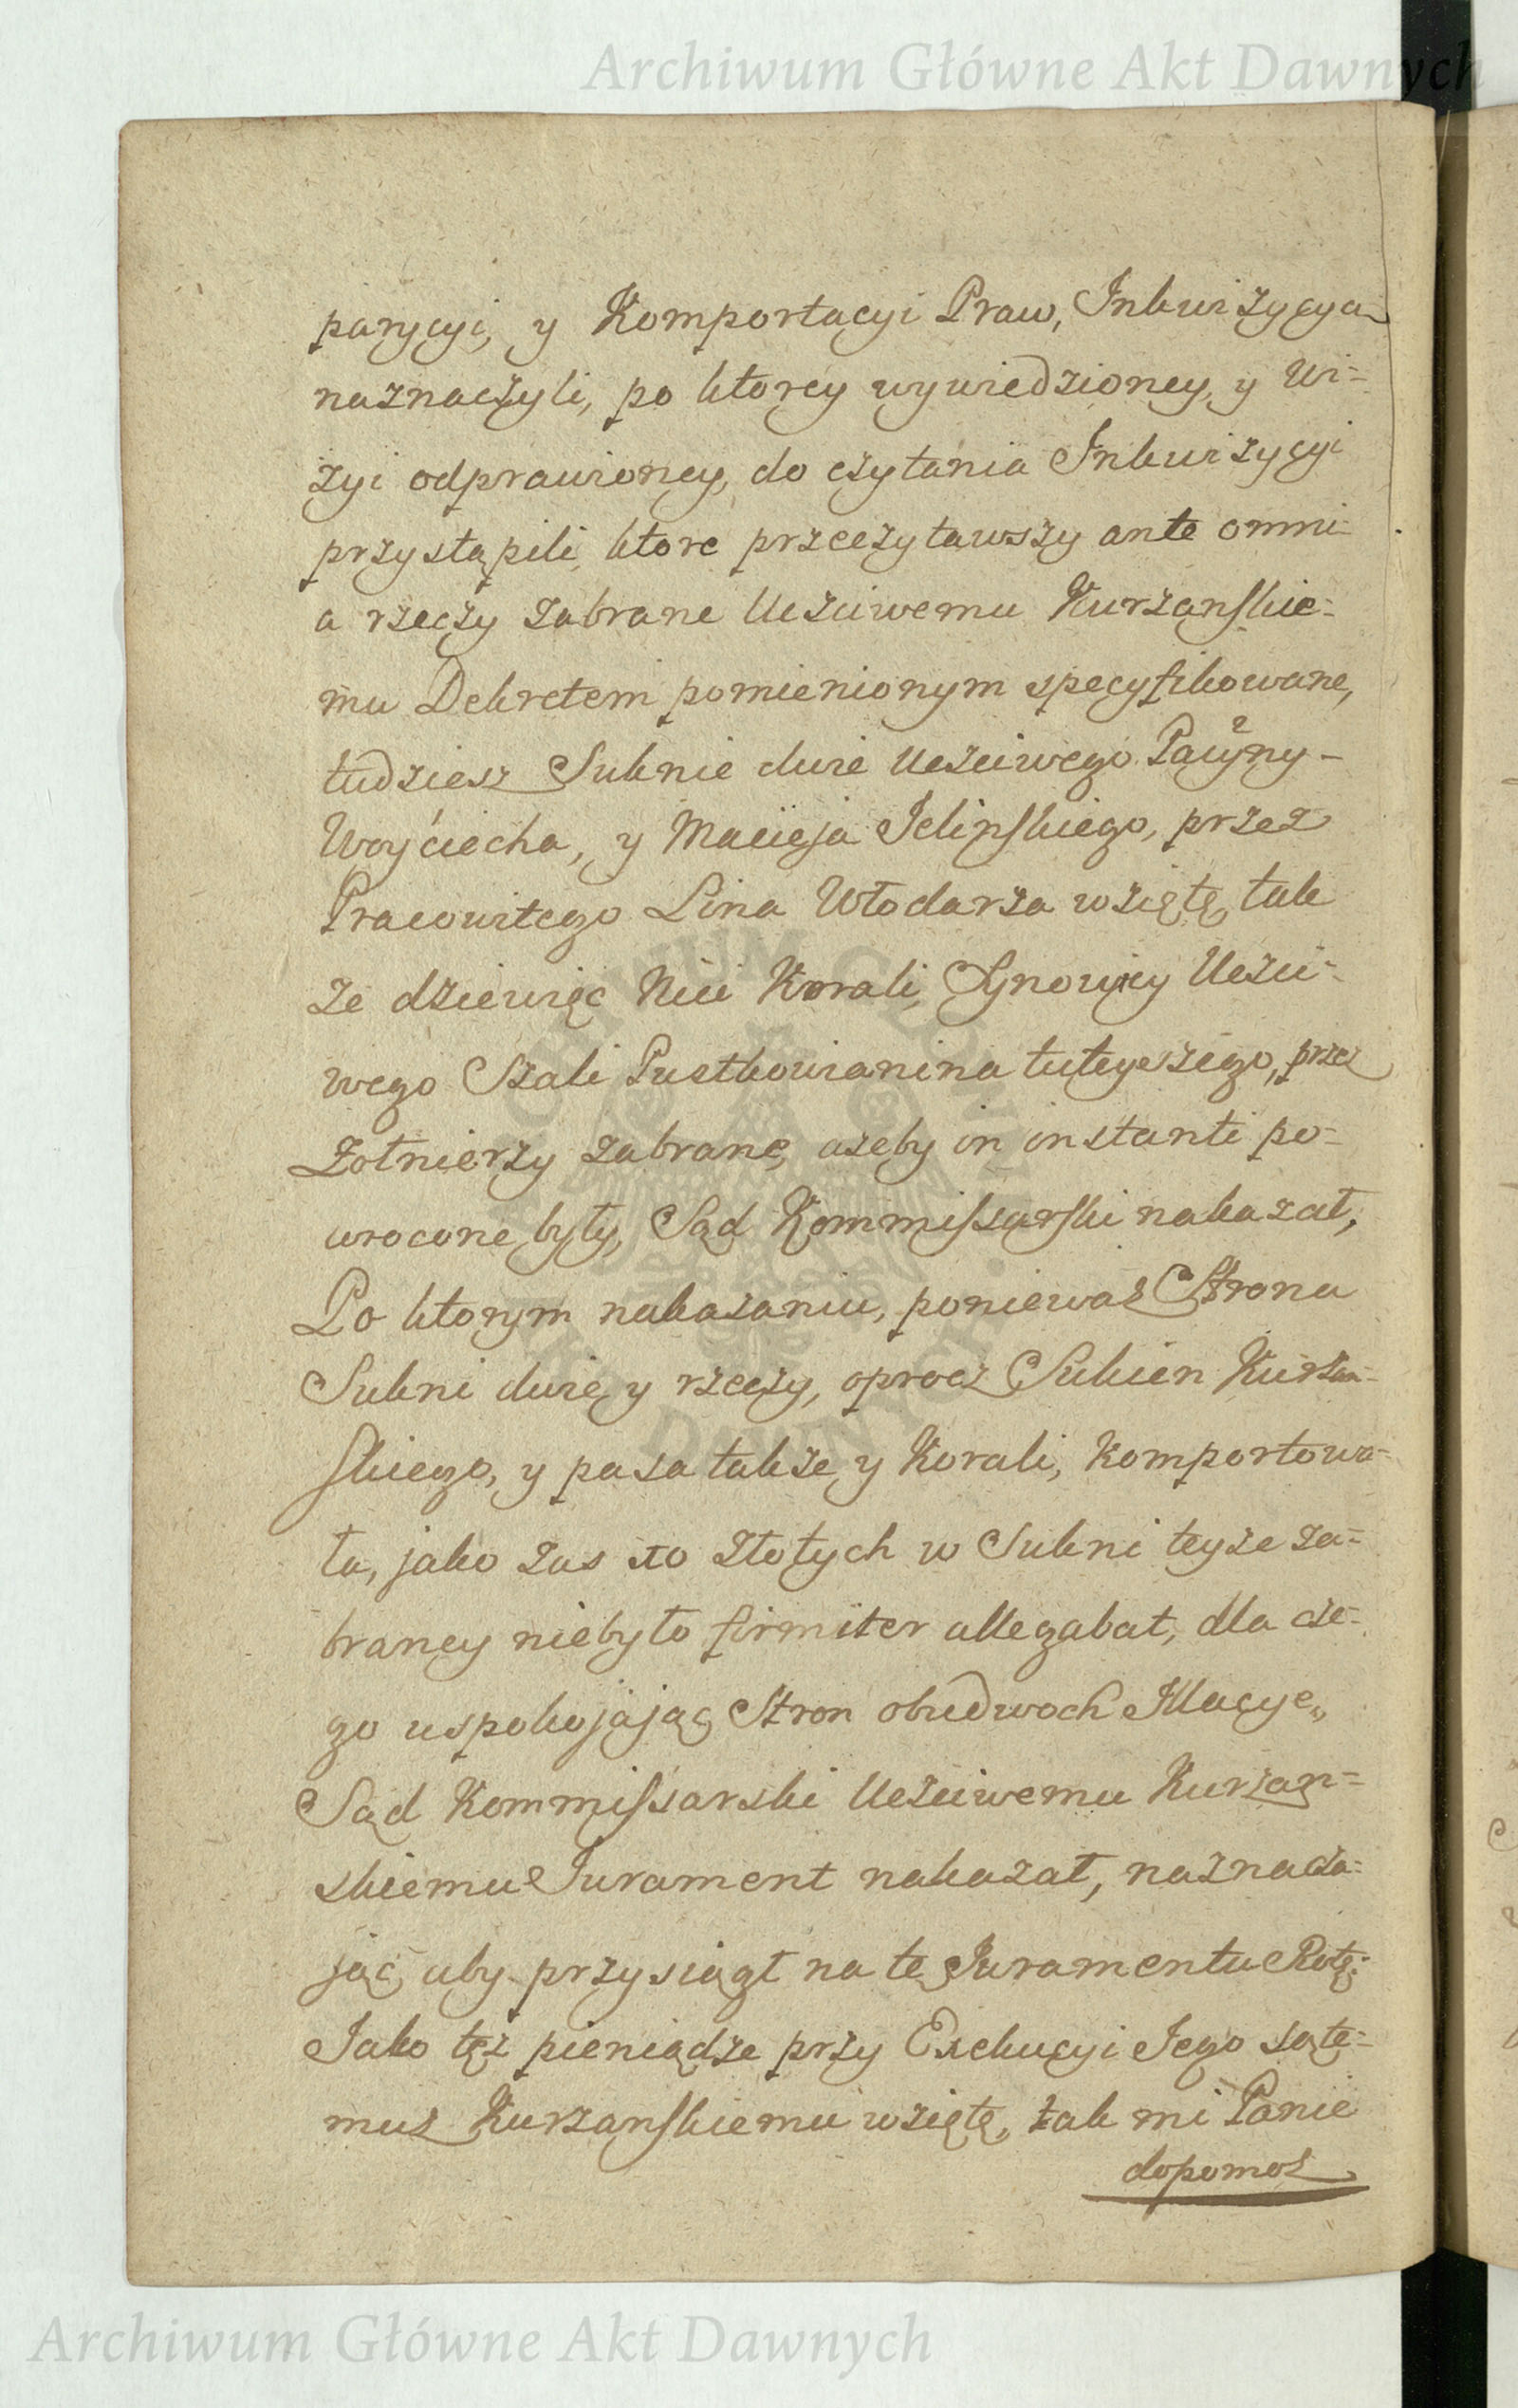 Archiwum Główne Akt Dawnych
parycyi, y Komportacyi Praw, Inkwizycya
naznaczyli, po ktorey wywiedzioney, y Wi=
zyi odprawioney, do czytania Inkwizycyi
przystąpili, ktore przeczytawszy ante omni=
a rzeczy zabrane Uczciwemu Kurzanskie=
mu Dekretem pomienionym specyfikowane,
tudziesz Suknie dwie Uczciwego
Woyciecha, y Macieja Jelinskiego, przez
Pracowitego Lina Włodarza wzięte, tak
ze dziewięc Nici Korali, Synowicy Uczci=
wego Szali Pustkowianina tuteyszego, przez
Zołnierzy zabrane, azeby in instanti po=
wrocone były, Sąd Kommissarski nakazał,
Po ktorym nakazaniu, poniewaz Strona
Sukni dwie y rzeczy, oprocz Sukien Kurzan=
skiego, y pasa takze y Korali, komportowa=
ła, jako zas sto Złotych w Sukni teyze za=
braney niebyło firmiter allegabat, dla cze=
go uspokojając Stron obudwoch Illacye,
Sąd Kommissarski Uczciwemu Kurzan=
skiemu Jurament nakazał, naznacza=
jąc, aby przysiągł na tę Juramentu Rotę:
Jako tęz pieniądze przy Exekucyi Jego są te=
muz Kurzanskiemu wzięte, tak mi Panie
dopomoz
Archiwum Główne Akt Dawnych